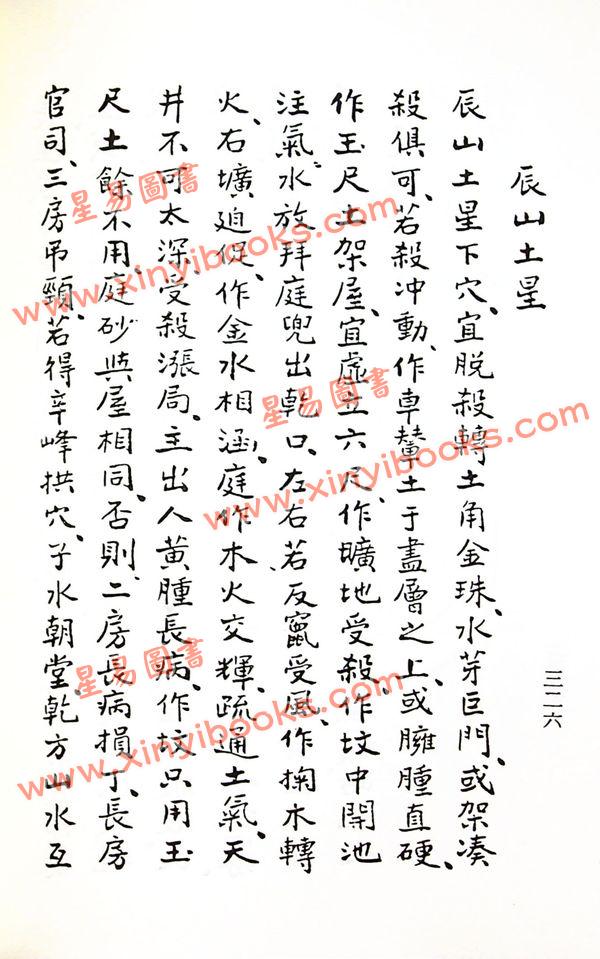 辰山土星
辰山土星下穴、宜脱殺轉土角金珠、水芽巨門、或架湊
殺俱可、若殺冲動、作車輦土于盡層之上、或臃腫直硬、
作玉尺土架屋、宜虛立六尺、作壙地受殺、作坟中開池
注氣、水放拜庭兜出乾口、左右若反竄受風、作掬木轉
火、右壙廹促、作金水相涵、庭作木火交輝、疏通土氣、天
井不可太深、受殺漲局、主出人黃腫長病、作坟只用玉
尺土餘不用、庭砂與屋相同、否則、二房長病損丁、長房
官司、三房吊頸、若得辛峰拱穴、子水朝堂、乾方山水互
三二六
星易圖書
www.xinyibooks.com
星易圖書
www.xinyibooks.com
星易圖書
www.xinyibooks.com